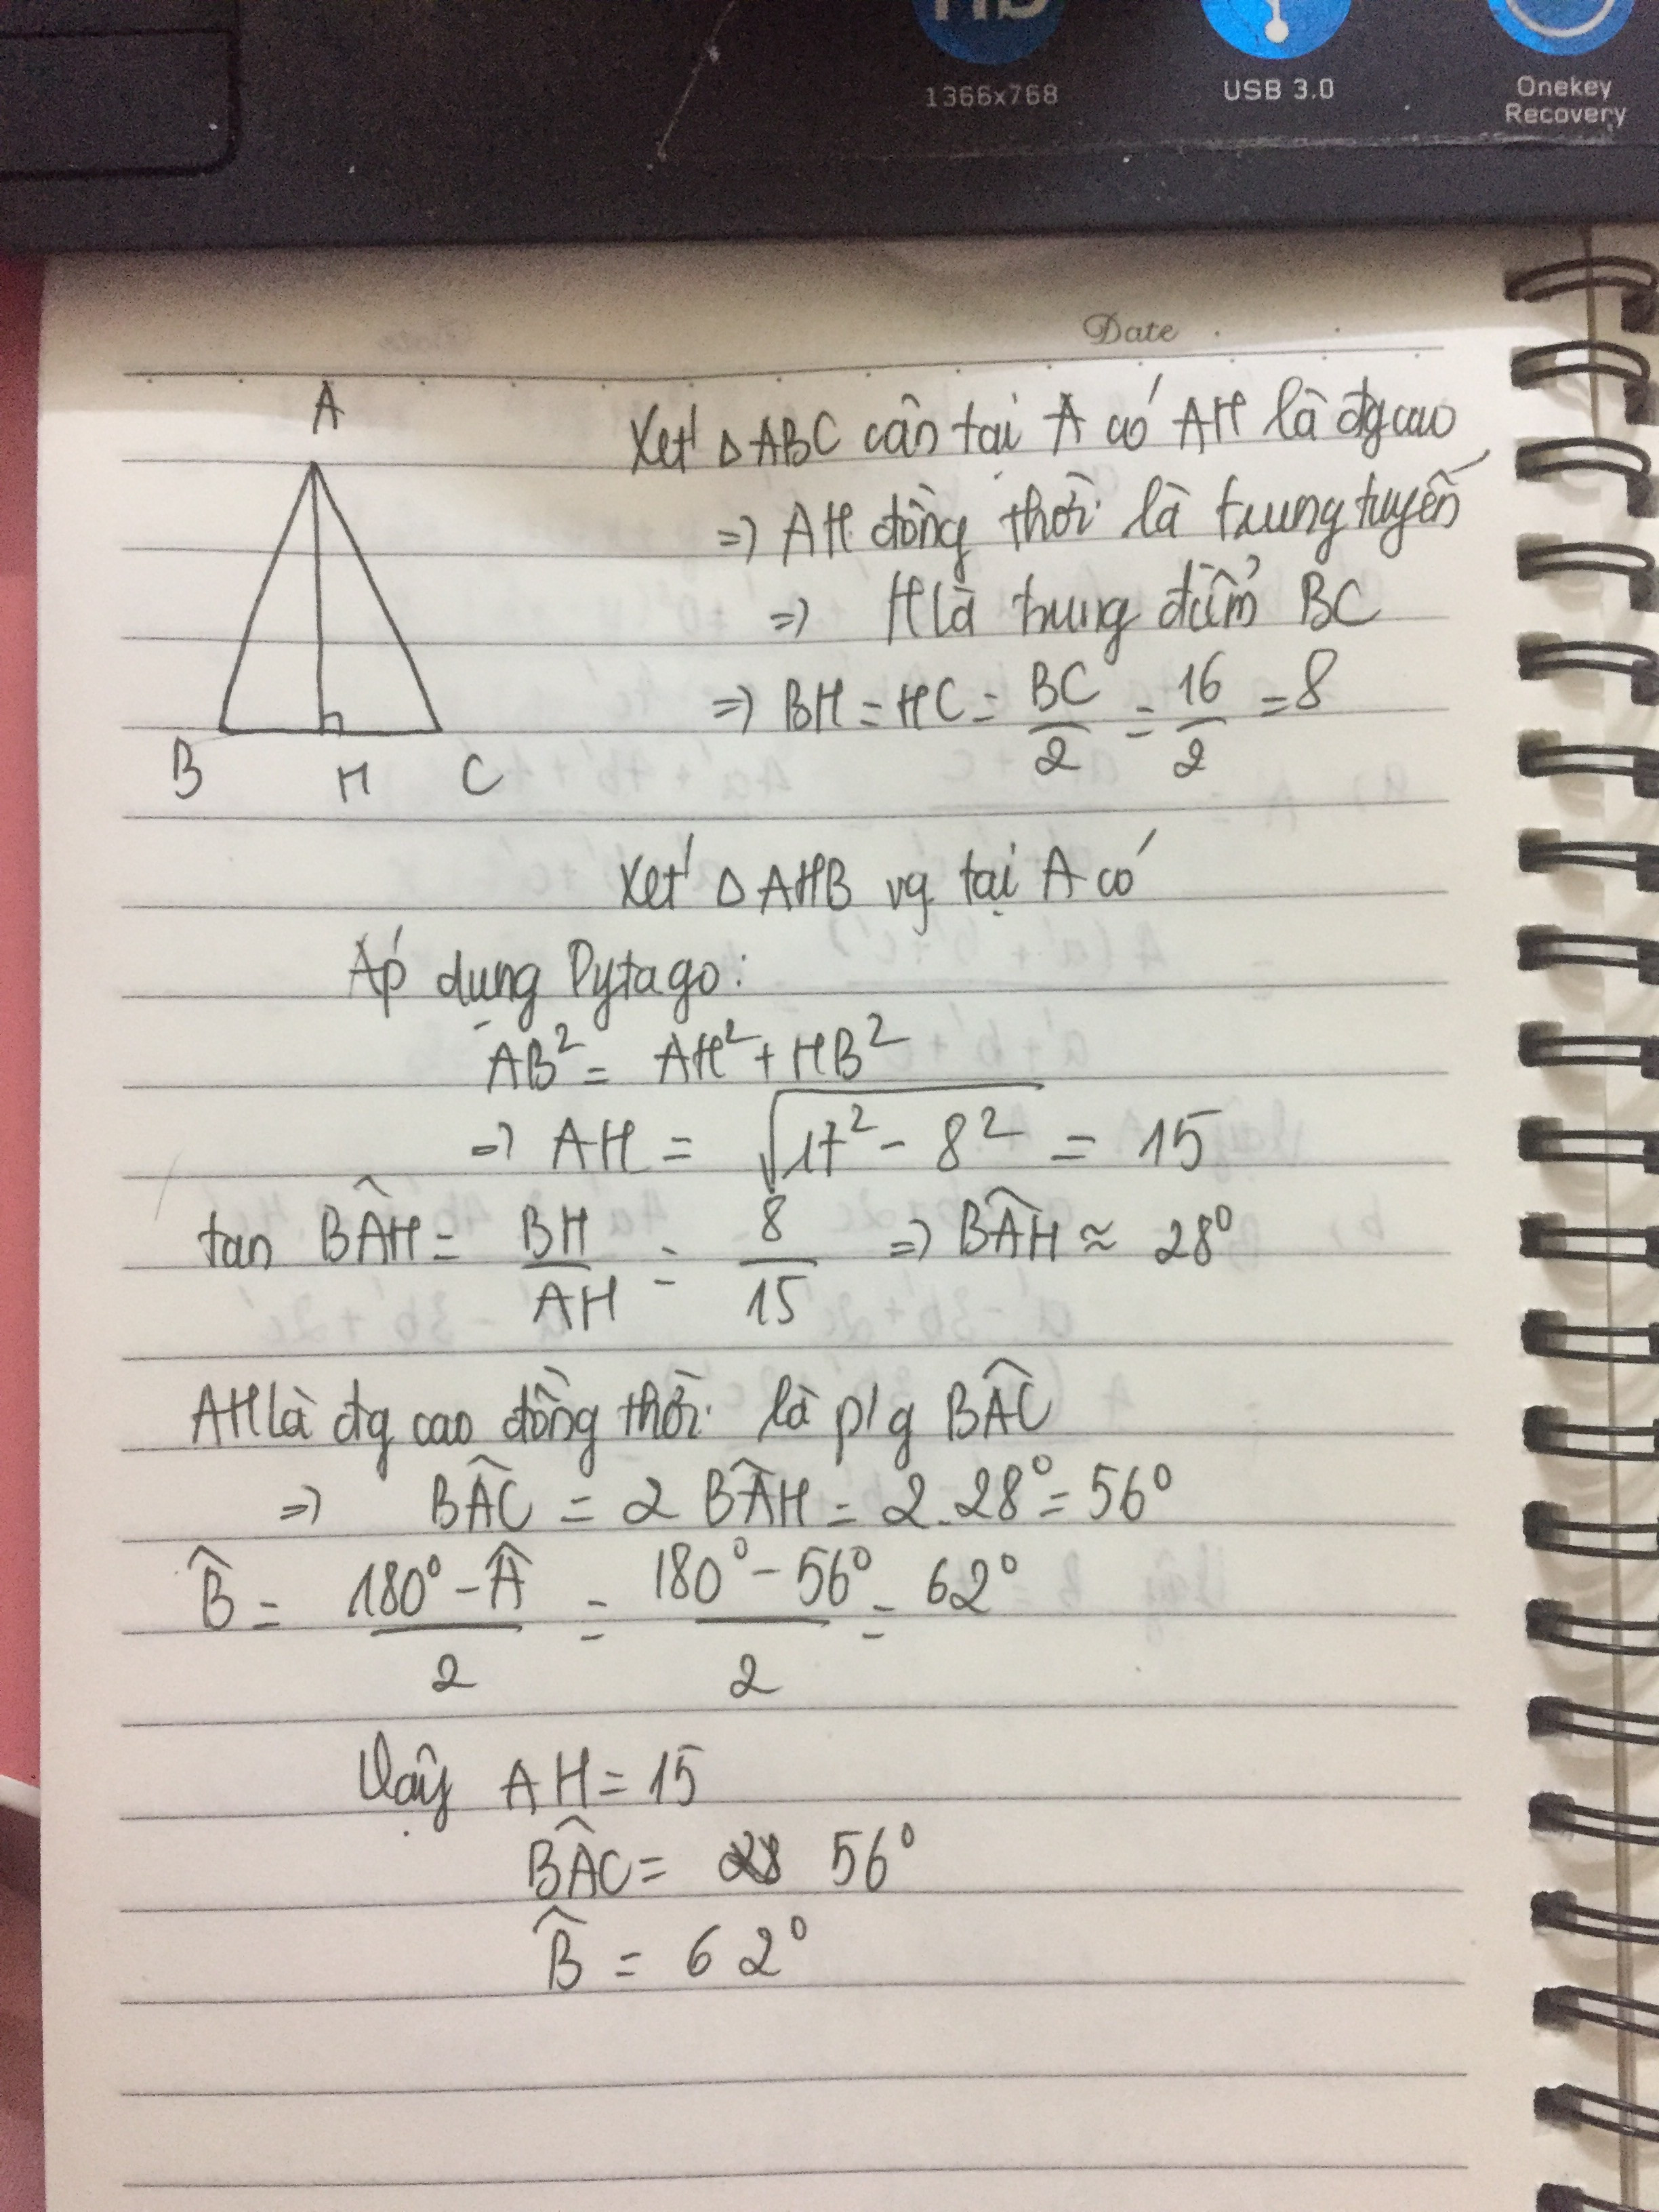 HD
1366x768
USB 3.0
Onekey
Recovery
Date
A
B H C
Xét △ABC cân tại A có AH là đg cao
=> AH đồng thời là trung tuyến
=> H là trung điểm BC
=> BH = HC = BC/2 = 16/2 = 8
Xét △AHB vg tại A có
Áp dụng Pytago:
AB² = AH² + HB²
=> AH = √(17² - 8²) = 15
tan BÂH = BH/AH = 8/15 => BÂH ≈ 28°
AH là đg cao đồng thời là p/g BÂC
=> BÂC = 2 BÂH = 2.28° = 56°
B̂ = (180° - Â)/2 = (180° - 56°)/2 = 62°
Vậy AH = 15
BÂC = 56°
B̂ = 62°